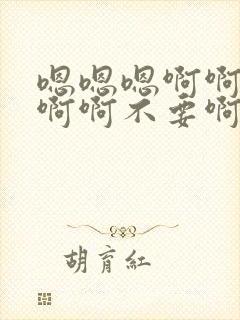 嗯嗯嗯啊啊
啊啊不要啊
胡育紅